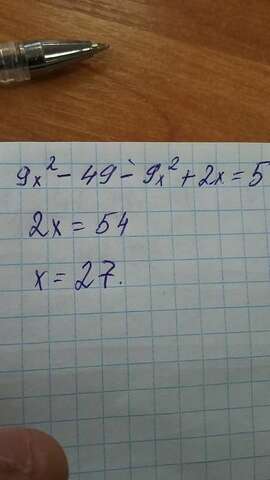 9x² - 49 - 9x² + 2x = 5
2x = 54
x = 27.